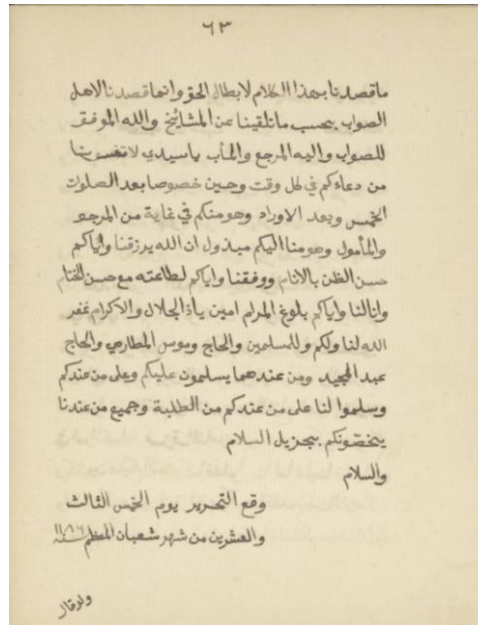 ٦٣
ما قصدنا بهذا الكلام لابطال الحق وانما قصدنا لاهل
الصواب بحسب ما تلقينا عن المشائخ والله الموفق
للصواب واليه المرجع والمأب يا سيدي لا تنسونا
من دعاءكم في كل وقت وحين خصوصا بعد الصلوات
الخمس وبعد الاوراد وهو منكم في غاية من المرجو
والمأمول وهو منا اليكم مبذول ان الله يرزقنا واياكم
حسن الظن بالانام ووفقنا واياكم لطاعته مع حسن الختام
وانالنا واياكم بلوغ المرام امين ياذا الجلال والاكرام غفر
الله لنا ولكم وللمسلمين والحاج وموسى المطاري والحاج
عبد المجيد ومن عندهما يسلمون عليكم وعلى من عندكم
وسلموا لنا على من عندكم من الطلبة وجميع من عندنا
يخصونكم بجزيل السلام
والسلام
وقع التحرير يوم الخمس الثالث
والعشرين من شهر شعبان المعظم سنة ١١٨٦
ولو قال